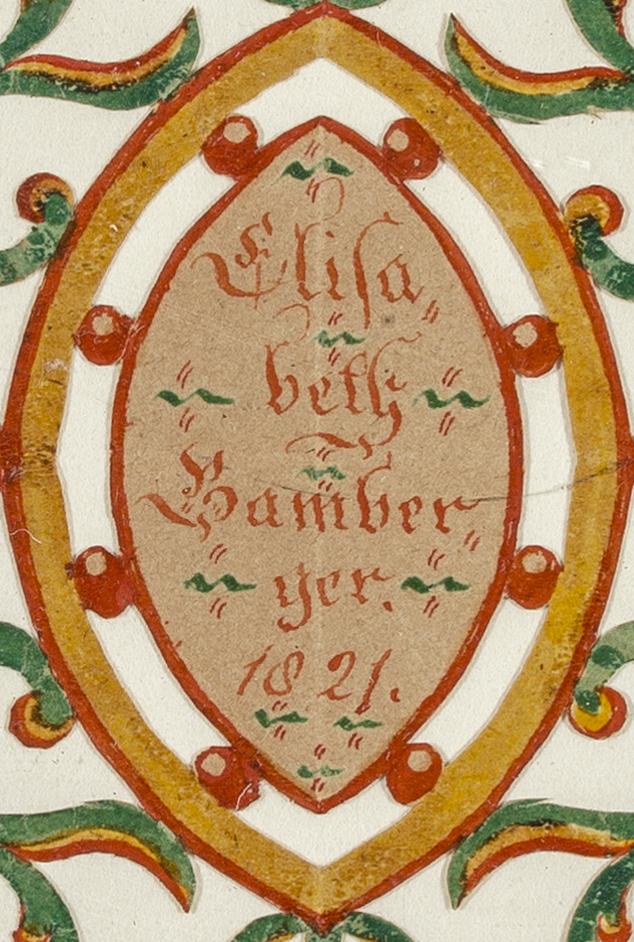 Elisa⸗
beth
Bamber⸗
ger.
1821.